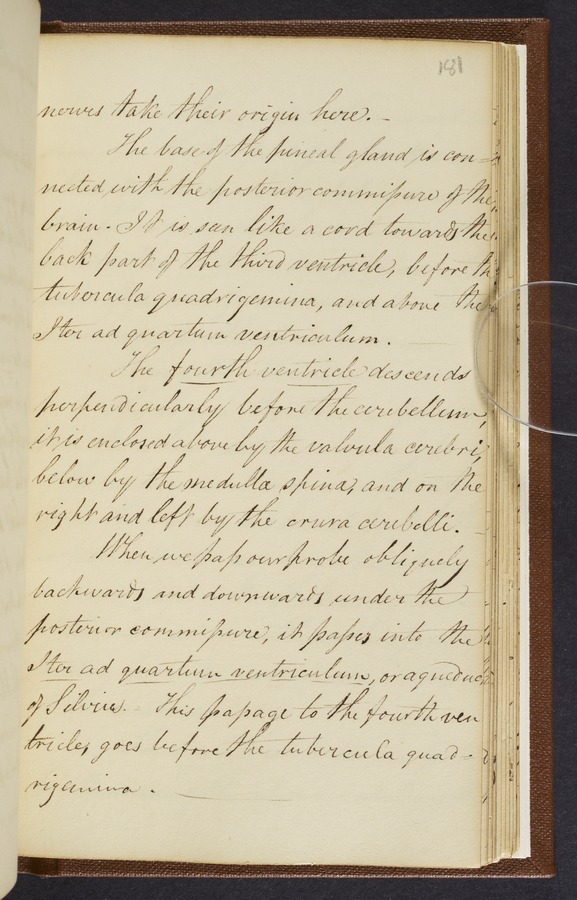 181
nerves take their origin here. _
The base of the pineal gland is con=
nected with the posterior commiſsure of the
brain. It is seen like a cord towards the
back part of the third ventricle, before the
tubercula quadrigemina, and above the
Iter ad quartum ventriculum.
The fourth ventricle descends
perpendicularly before the cerebellum,
it is enclosed above by the valvula cerebri,
below by the medulla spina, and on the
right and left by the crura cerebelli.
When we paſs our probe obliquely
backwards and downwards under the
posterior commiſsure, it paſses into the
Iter ad quartum ventriculum, or aqueduct
of Silvius. - This paſsage to the fourth ven
tricle, goes before the tubercula quad=
rigemina.